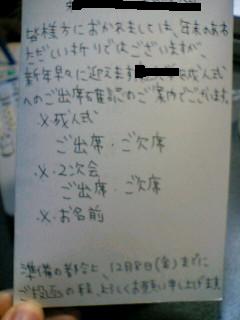 皆様方におかれましては、年末のあわ
ただしい折りではございますが、
新年早々に迎えます成人式
へのご出席確認のご案内でございます。
※成人式
ご出席・ご欠席
※2次会
ご出席・ご欠席
※お名前
準備の都合上、12月8日(金)までに
ご投函の程、よろしくお願い申し上げます